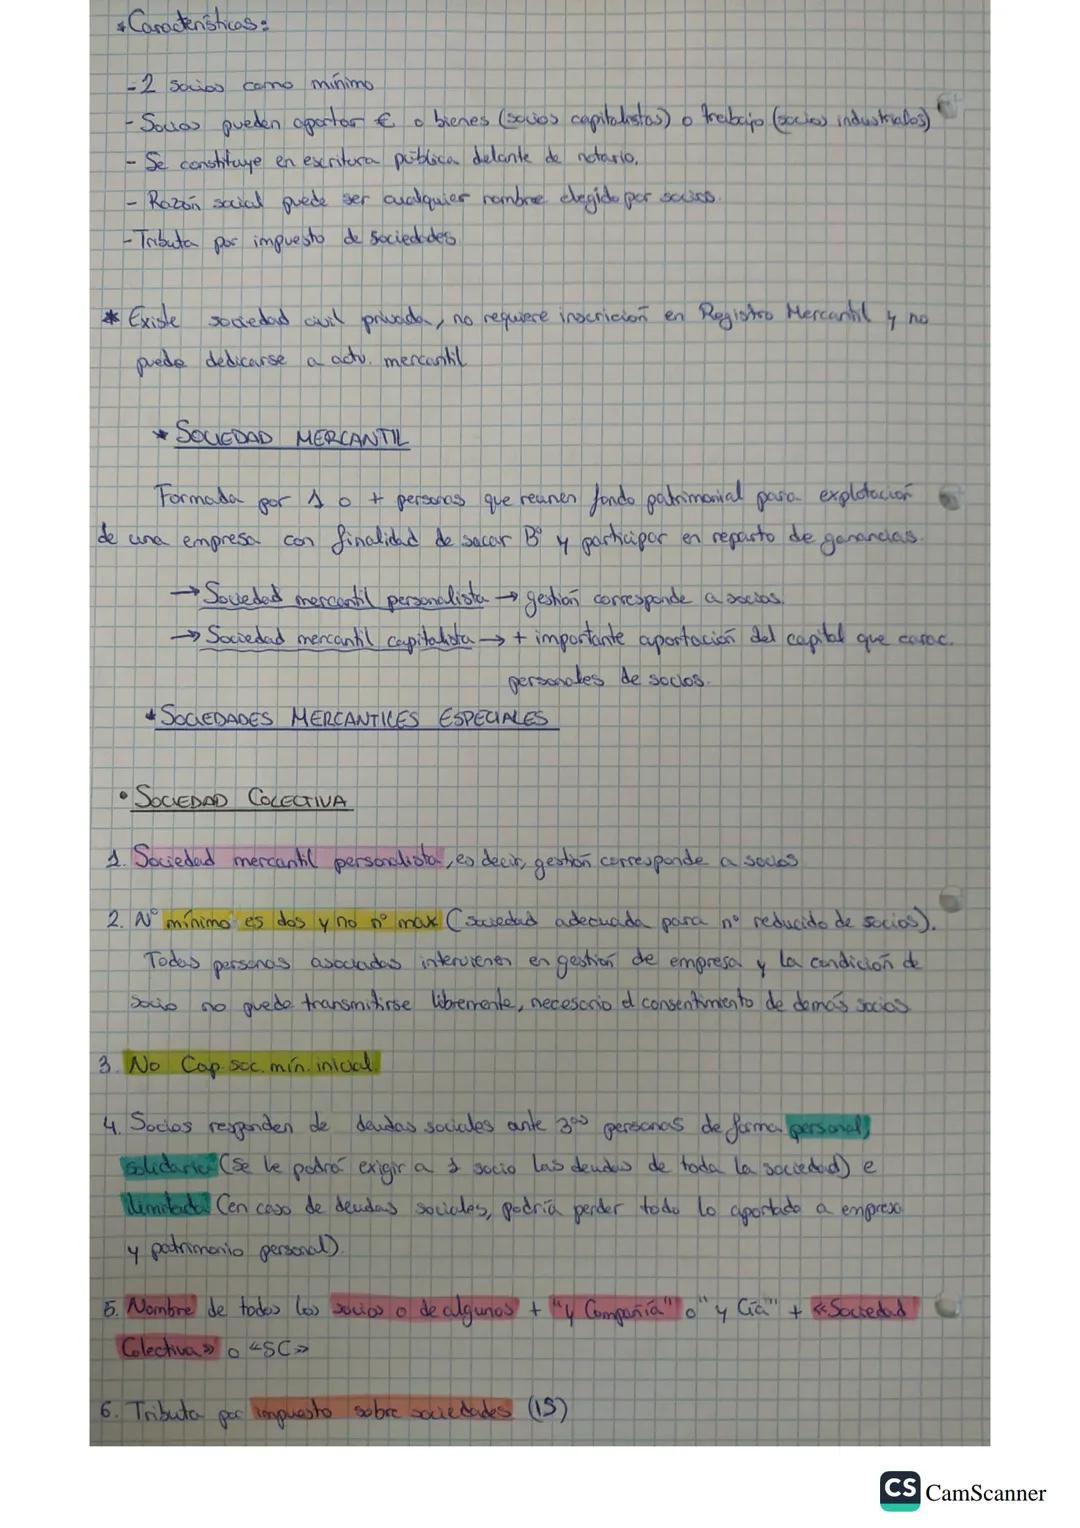 * Características:
- 2 socios como mínimo
- Socios pueden aportar € o bienes (socios capitalistas) o trabajo (socios industriales)
- Se constituye en escritura pública delante de notario.
- Razón social puede ser cualquier nombre elegido por socios.
- Tributa por impuesto de sociedades
* Existe sociedad civil privada, no requiere inscrición en Registro Mercantil y no
puede dedicarse a actv. mercantil
* SOCIEDAD MERCANTIL
Formada por 1 o + personas que reunen fondo patrimonial para explotación
de una empresa con finalidad de sacar Bº y participar en reparto de ganancias.
→ Sociedad mercantil personalista → gestión corresponde a socios.
→ Sociedad mercantil capitalista → + importante aportación del capital que carac.
personales de socios.
* SOCIEDADES MERCANTILES ESPECIALES
• SOCIEDAD COLECTIVA
1. Sociedad mercantil personalista, es decir, gestión corresponde a socios
2. Nº mínimo es dos y no nº max (sociedad adecuada para nº reducido de socios).
Todas personas asociadas intervienen en gestión de empresa y la condición de
socio no puede transmitirse libremente, necesario el consentimiento de demás socios
3. No Cap. soc. mín. inicial.
4. Socios responden de deudas sociales ante 3as personas de forma personal,
solidaria (se le podrá exigir a 1 socio las deudas de toda la sociedad) e
ilimitada (en caso de deudas sociales, podría perder todo lo aportado a empresa
y patrimonio personal).
5. Nombre de todos los socios o de algunos + "y Compañía" o "y Cía" + «Sociedad
Colectiva» o «SC»
6. Tributa por impuesto sobre sociedades (IS)
CS CamScanner